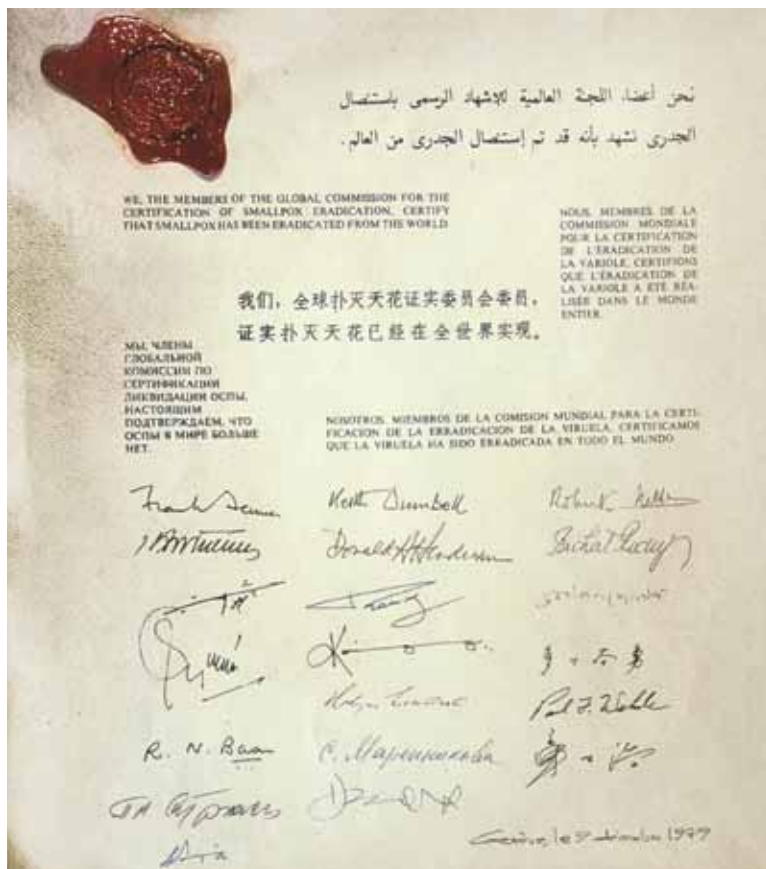 نحن أعضاء اللجنة العالمية للاشهاد الرسمى باستئصال
الجدرى نشهد بأنه قد تم إستئصال الجدرى من العالم .
WE, THE MEMBERS OF THE GLOBAL COMMISSION FOR THE
CERTIFICATION OF SMALLPOX ERADICATION, CERTIFY
THAT SMALLPOX HAS BEEN ERADICATED FROM THE WORLD.
NOUS, MEMBRES DE LA
COMMISSION MONDIALE
POUR LA CERTIFICATION
DE L'ÉRADICATION DE
LA VARIOLE, CERTIFIONS
QUE L'ÉRADICATION DE
LA VARIOLE A ÉTÉ RÉA-
LISÉE DANS LE MONDE
ENTIER.
我们，全球扑灭天花证实委员会委员，
证实扑灭天花已经在全世界实现。
МЫ, ЧЛЕНЫ
ГЛОБАЛЬНОЙ
КОМИССИИ ПО
СЕРТИФИКАЦИИ
ЛИКВИДАЦИИ ОСПЫ,
НАСТОЯЩИМ
ПОДТВЕРЖДАЕМ, ЧТО
ОСПЫ В МИРЕ БОЛЬШЕ
НЕТ.
NOSOTROS, MIEMBROS DE LA COMISION MUNDIAL PARA LA CERTI-
FICACION DE LA ERRADICACION DE LA VIRUELA, CERTIFICAMOS
QUE LA VIRUELA HA SIDO ERRADICADA EN TODO EL MUNDO.
Frank Fenner Keith Dumbell
Donald A Henderson
Paul F. Wehrle
R. N. Basu С. Маренникова
Genève, le 9 décembre 1979